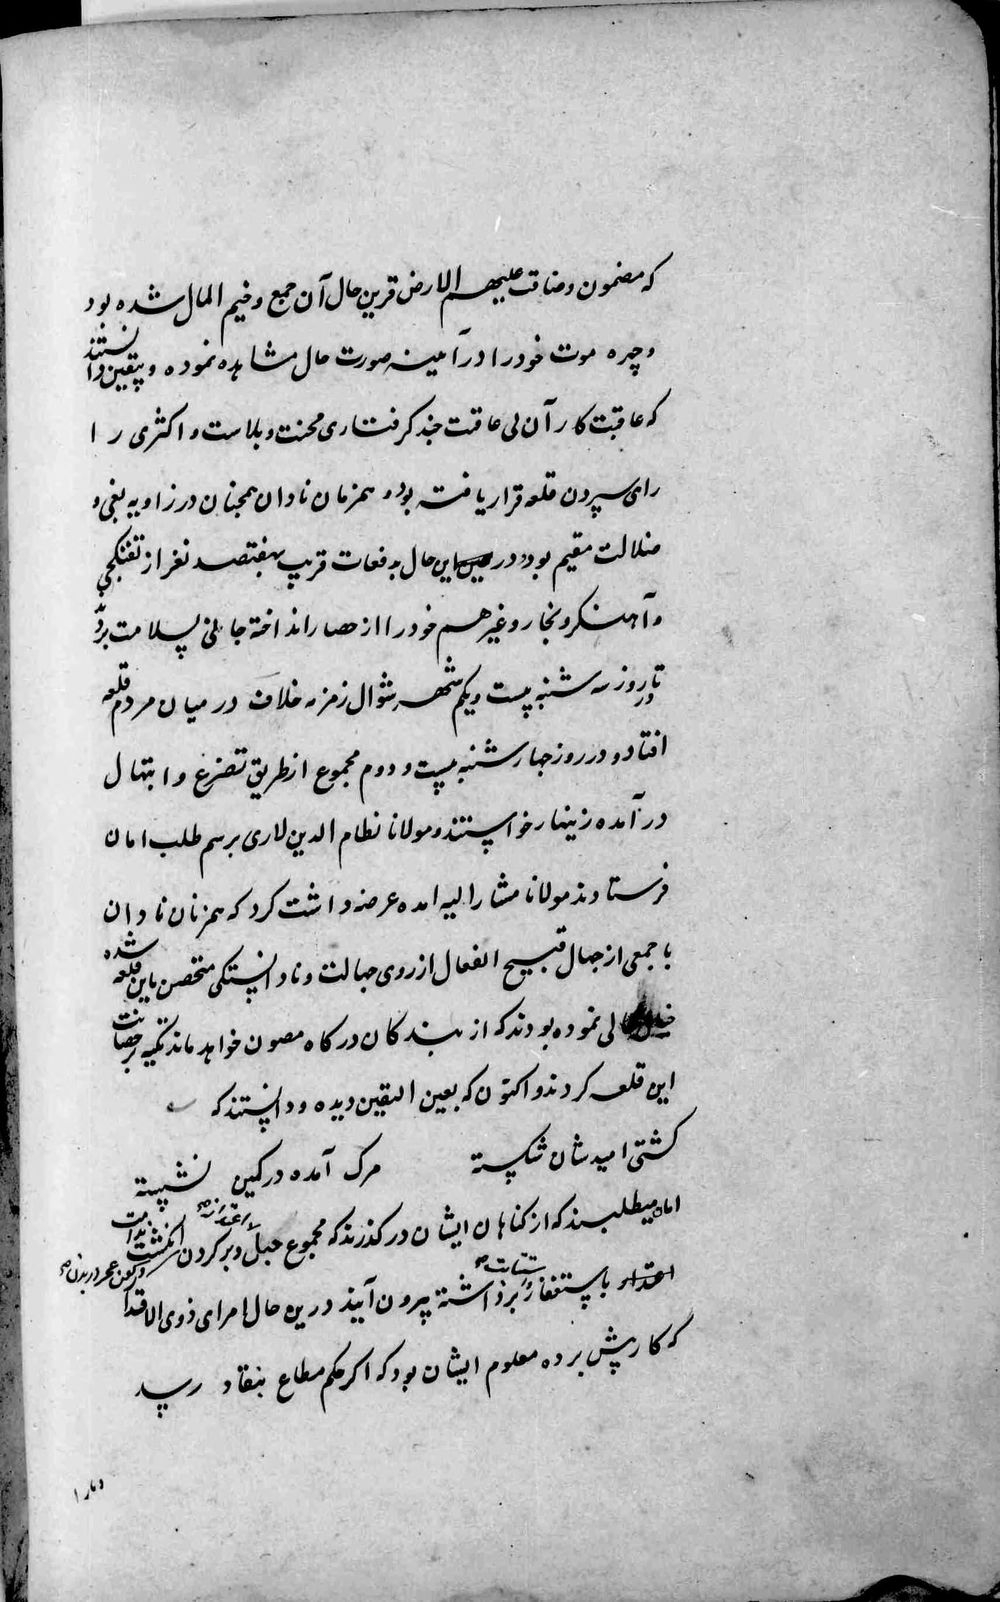 که مضمون وضاقت علیهم الارض قرین حال آن جمع وخیم المال شده بود
و چهره موت خود را در آئینه صورت حال مشاهده نموده و بیقین دانستند
که عاقبت کار آن بی عاقبت چند گرفتاری محنت و بلاست و اکثری را
رای سپردن قلعه قرار یافته بود و همزمان نادان همچنان در زاویه بغی و
ضلالت مقیم بود در این حال بدفعات قریب بهفتصد نفر از تفنگچی
و آهنگر و نجار و غیرهم خود را از حصار انداخته جانی بسلامت بردند
تا در روز سه شنبه بیست و یکم شهر شوال زمزمه خلاف در میان مردم قلعه
افتاد و در روز چهار شنبه بیست و دوم مجموع از طریق تضرع و ابتهال
در آمده زینهار خواستند و مولانا نظام الدین لاری برسم طلب امان
فرستادند مولانا مشار الیه امده عرضه داشت کرد که همزمان نادان
با جمعی از جهال قبیح الفعال از روی جهالت و نادانستگی متحصن باین قلعه شده
نموده بودند که از بندگان درگاه مصون خواهد ماند تکیه بر حصانت
این قلعه کردند و اکنون که بعین الیقین دیده و دانستند که
کشتی امیدشان شکسته مرگ آمده در کمین نشسته
امان میطلبند که از گناهان ایشان در گذرند که مجموع حبل اعتذار در گردن انگشت ندامت
باستغفار برداشته بیرون آیند درین حال امرای ذوی الاقتدار
که کار پیش برده معلوم ایشان بود که اگر حکم مطاع بنفاذ رسد
دمار ا